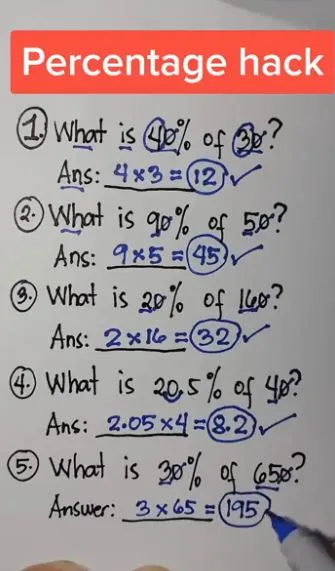 Percentage hack
1. What is 40% of 30?
Ans: 4 x 3 = 12 ✓
2. What is 90% of 50?
Ans: 9 x 5 = 45 ✓
3. What is 20% of 160?
Ans: 2 x 16 = 32 ✓
4. What is 20.5% of 40?
Ans: 2.05 x 4 = 8.2 ✓
5. What is 30% of 650?
Answer: 3 x 65 = 195